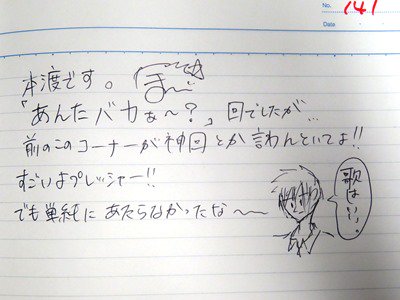 No. 141
Date
本渡です。 ほ〜
「あんたバカぁ〜？」回でしたが…
前のこのコーナーが神回とか言わんといてよ!!
すごいよプレッシャー!!
でも単純にあたらなかったな〜〜
歌はいい。